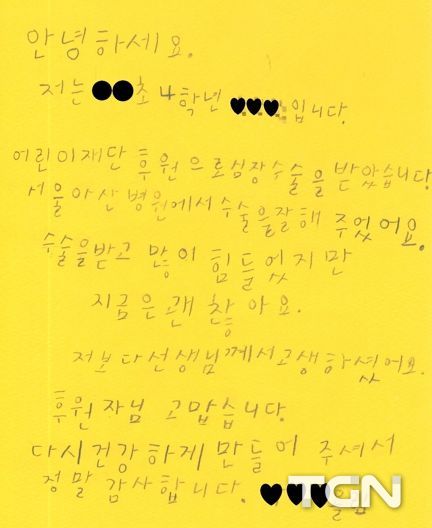 안녕하세요.
저는 ●●초 4학년 ♥♥♥입니다.
어린이재단 후원으로 심장수술을 받았습니다
서울아산병원에서 수술을 잘해 주었어요.
수술을 받고 많이 힘들었지만
지금은 괜찮아요.
저보다 선생님께서 고생하셨어요.
후원자님 고맙습니다.
다시 건강하게 만들어 주셔서
정말 감사합니다. ♥♥♥올림
TGN